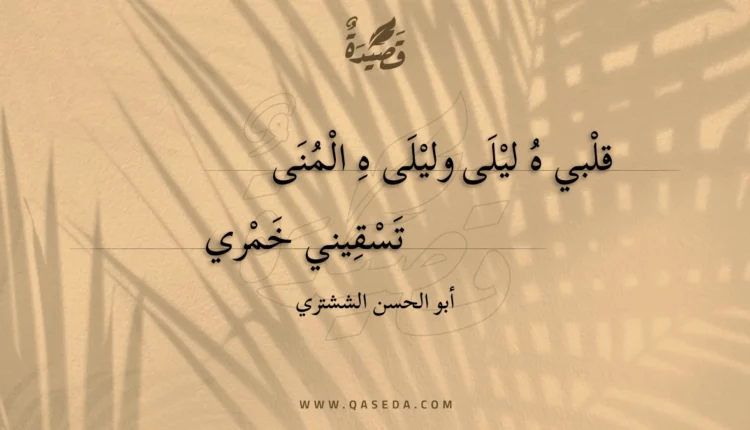 قَصِيْدَةٌ
قلْبي هُ ليْلَى وليْلَى هِ الْمُنَى
تَسْقِيني خَمْري
أبو الحسن الششتري
WWW.QASEDA.COM